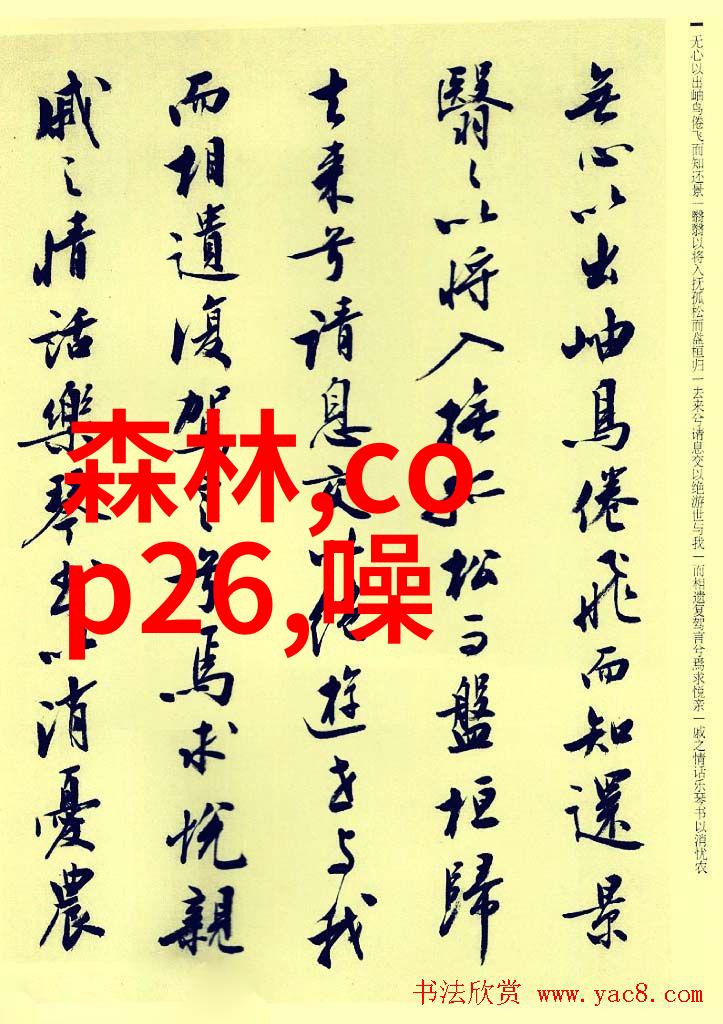 无心以出岫鸟倦飞而知还景一翳翳以将入抚孤松而盘桓归一去来兮请息交以绝游世与我一而相遗复驾言兮焉求悦亲一戚之情话乐琴书以消忧农
無心以出岫鳥倦飛而知還景
翳々以将入撫孤松而盤桓歸
去来兮請息交以絶遊世与我
而相遺復駕言兮焉求悦親
戚之情話樂琴書以消憂農
森林,co
p26,噪
书法欣赏 www.yac8.com